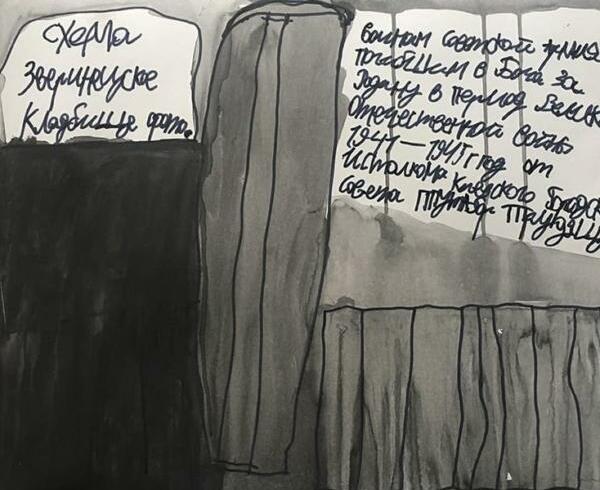 схема
Зверинецкое
кладбище фото.
воинам Советской армии
погибшим в боях за
Родину в период Велик
Отечественной войны
1941—1945 год от
Исполкома Киевского Городск
совета